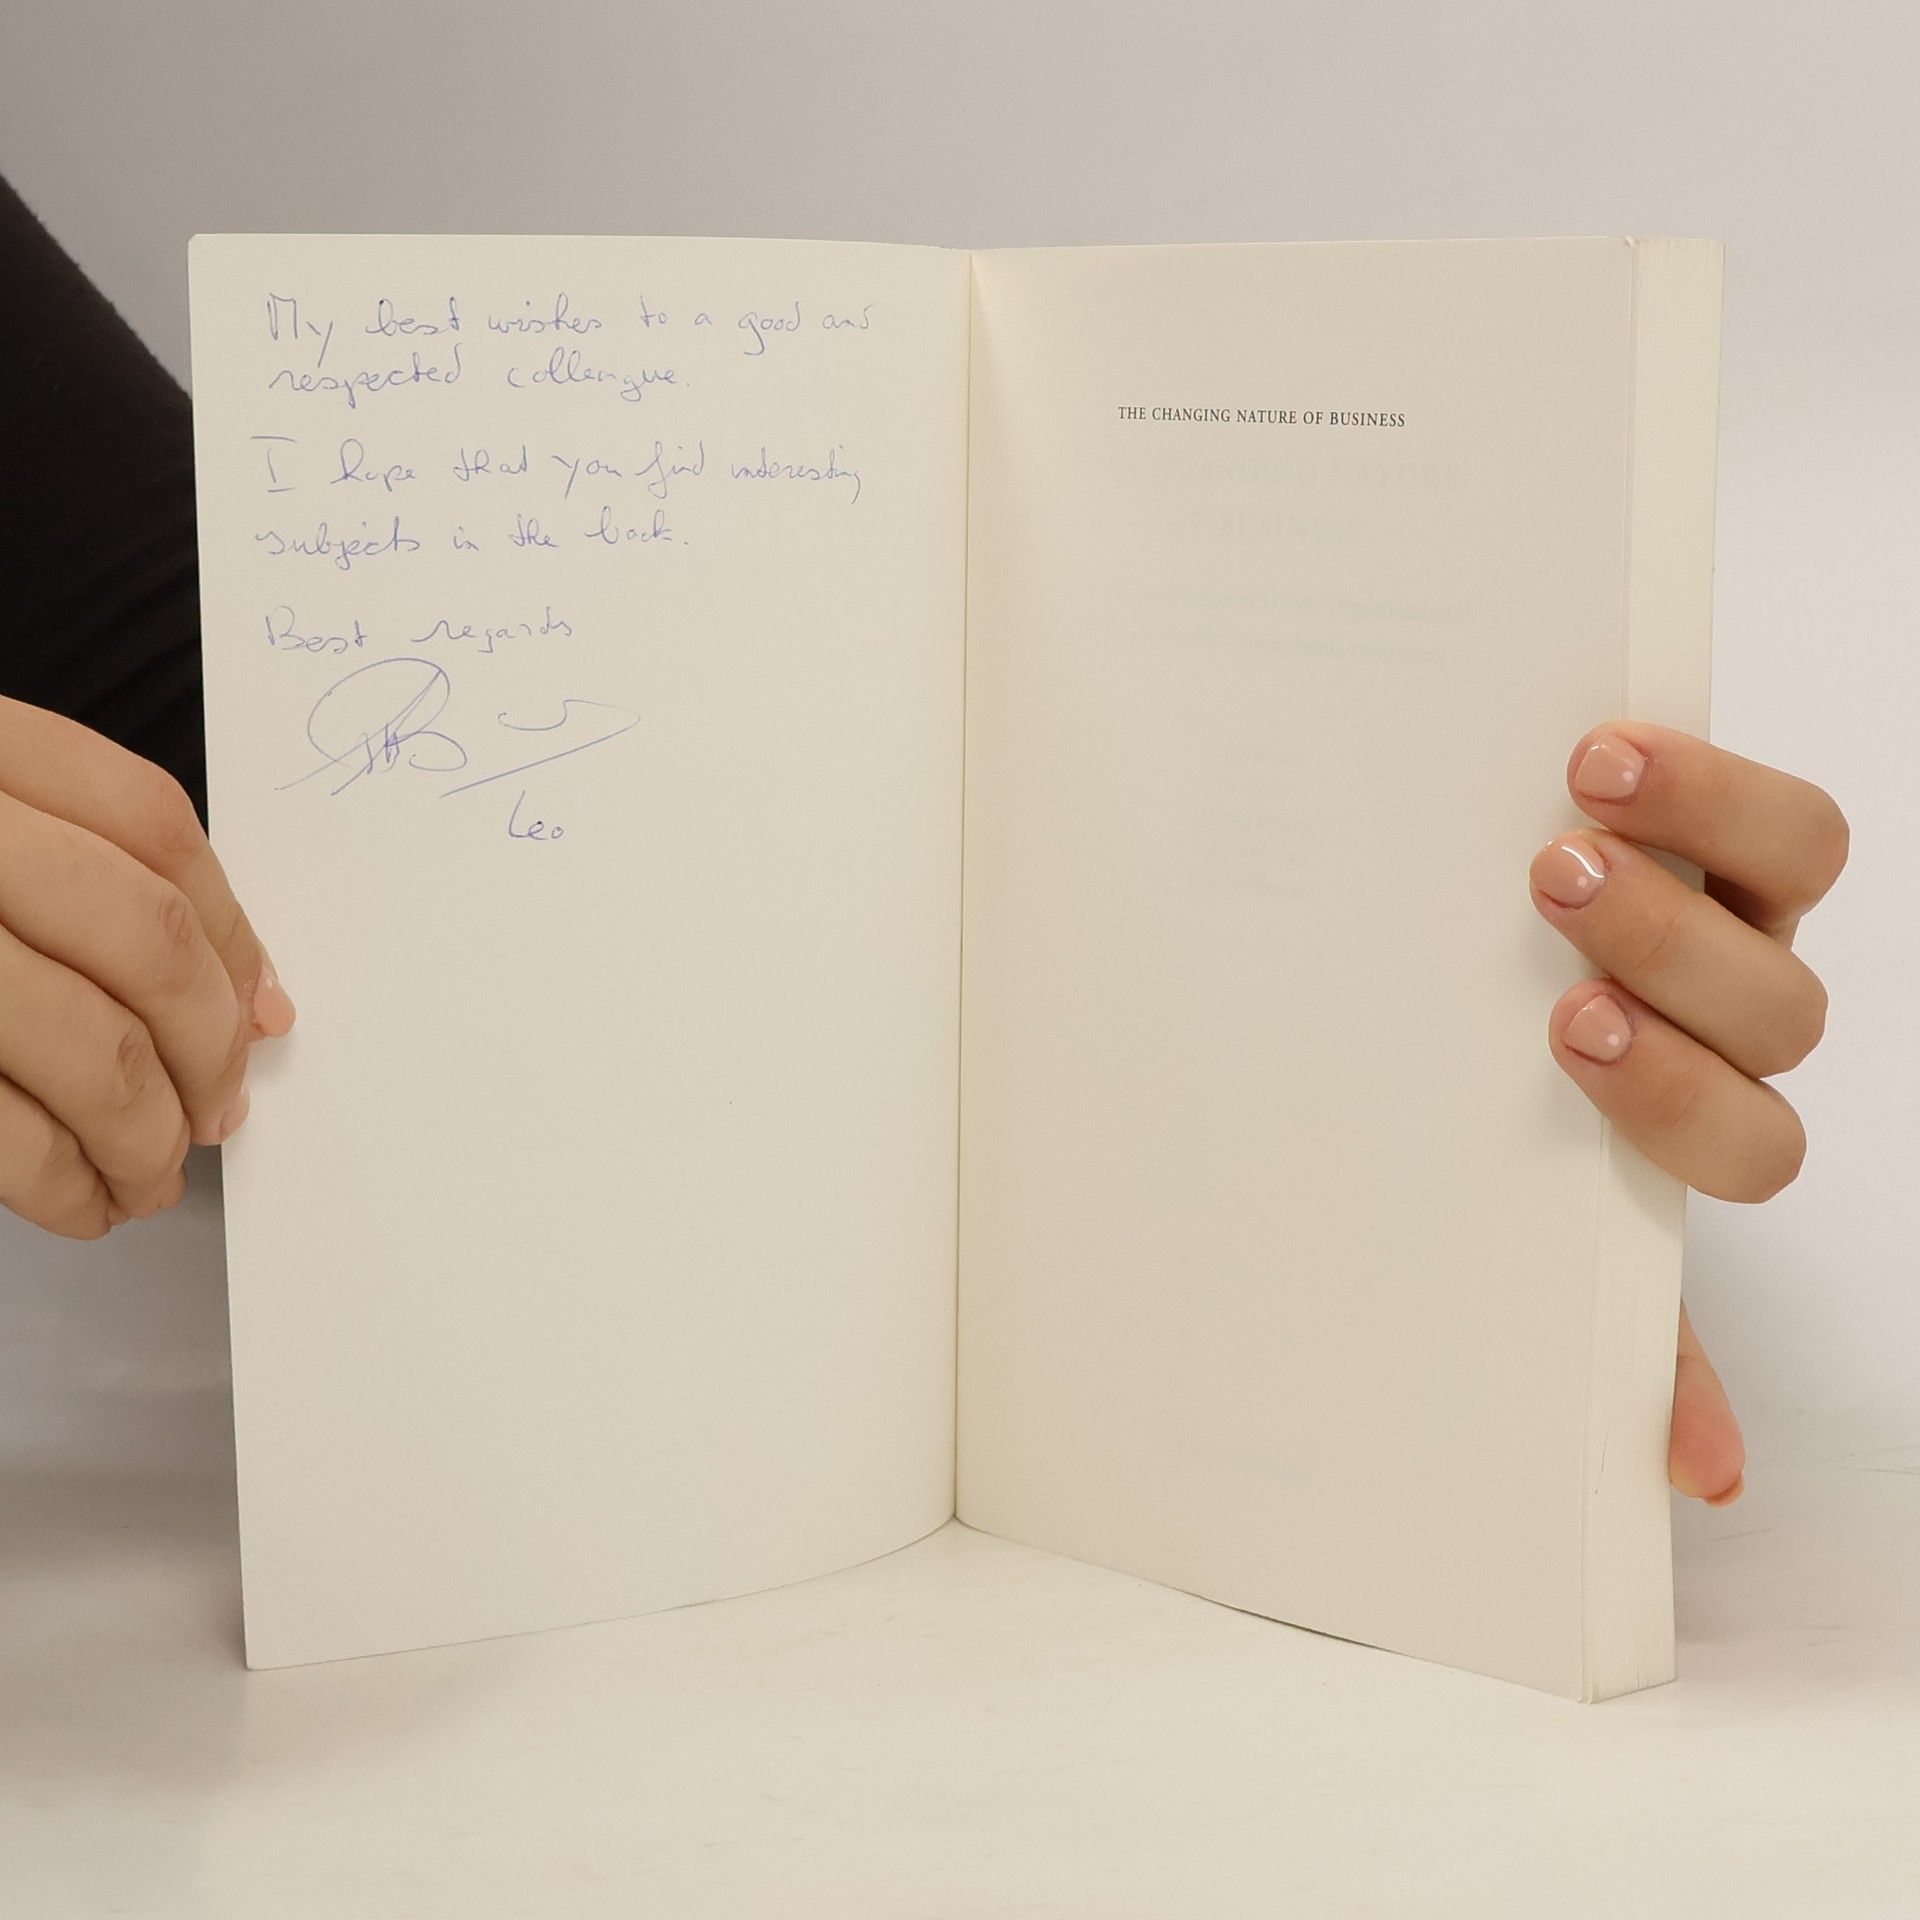 My best wishes to a good and
respected colleague.
I hope that you find interesting
subjects in the book.
Best regards
Leo
THE CHANGING NATURE OF BUSINESS